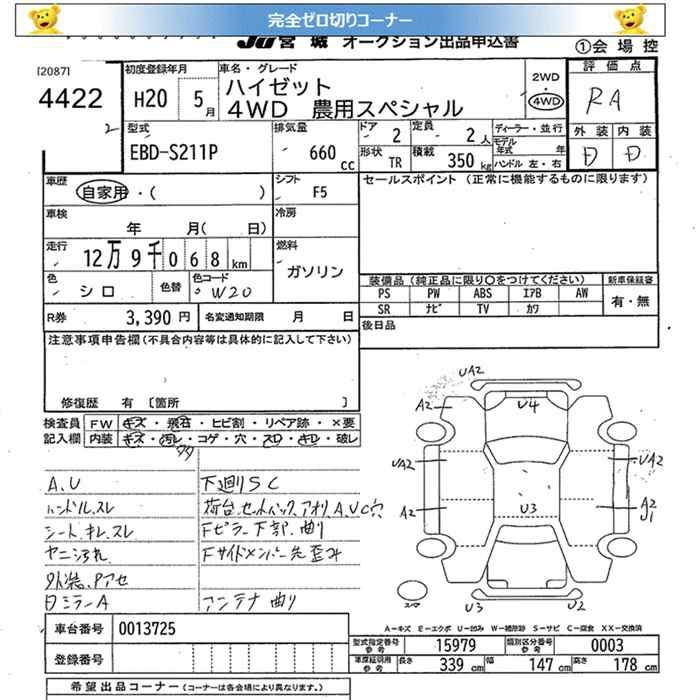 完全ゼロ切りコーナー
JU宮城 オークション出品申込書
①会場控
[2087]
4422
2
初度登録年月 H20 5月
車名・グレード ハイゼット
4WD 農用スペシャル
2WD
4WD
評価点
RA
外装 内装
D D
型式 EBD-S211P
排気量 660 cc
ドア 2
定員 2人
ディーラー・並行
モデル年式 年
形状 TR
積載 350 kg
ハンドル 左・右
車歴 自家用・( )
シフト F5
セールスポイント (正常に機能するものに限ります)
車検 年 月( 日)
冷房
走行 12万9千068 km
燃料 ガソリン
色 シロ
色替
色コード W20
装備品 (純正品に限り○をつけてください)
新車保証書
PS PW ABS エアB AW
有・無
SR ナビ TV カワ
R券 3,390円
名変通知期限 月 日
後日品
注意事項申告欄(不具合内容等は具体的に記入して下さい)
修復歴 有 [箇所 ]
検査員 FW キズ・飛石・ヒビ割・リペア跡・×要
記入欄 内装 キズ・汚レ・コゲ・穴・スレ・キレ・破レ
A.U
ハンドルスレ
シートキレスレ
ヤニ汚れ
外装、Pアセ
日ミラーA
下廻りSC
荷台、セットバック、アオリA,U,C穴
Fピラー下部曲り
Fサイドメンバー先歪み
アンテナ曲り
UA2
A2
U4
UA2
UA2
A2
U3
A2
J1
スマ
U3
U2
A－キズ E－エクボ U－凹み W－補修跡 S－サビ C－腐食 XX－交換済
車台番号 0013725
型式指定番号 参考 15979
類別区分番号 参考 0003
登録番号
車庫証明用 参考 長さ 339 cm 幅 147 cm 高さ 178 cm
希望出品コーナー (コーナーは各会場により異なります。)